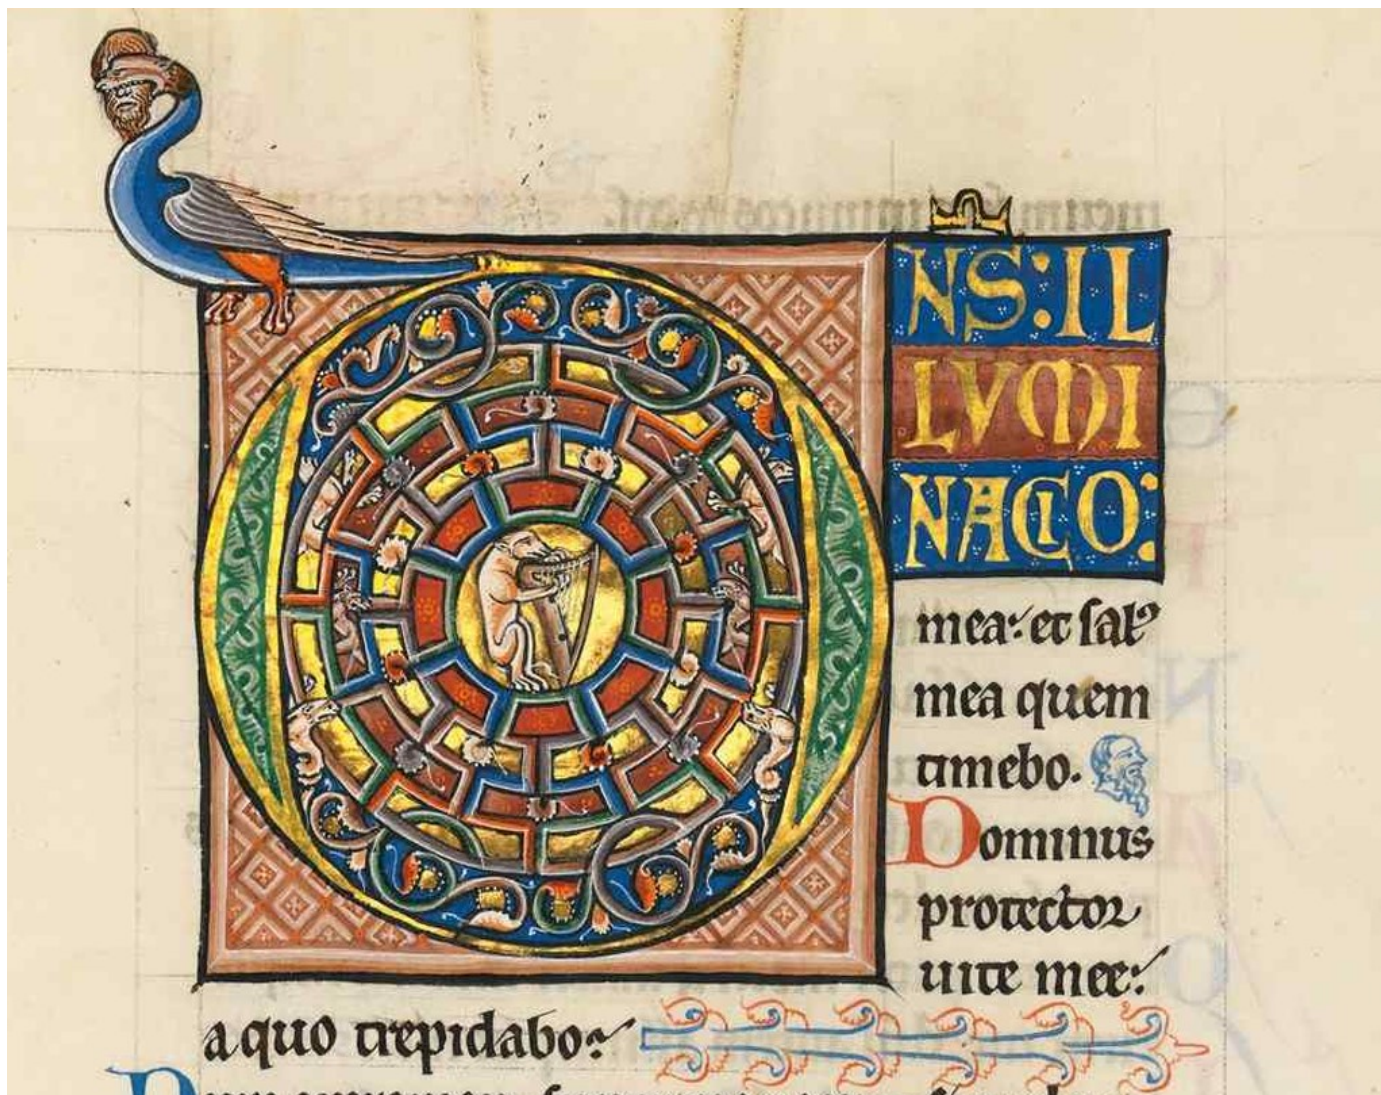 DNS: IL
LVMI
NACIO:
mea: et salꝰ
mea quem
timebo.
Dominus
protector
uite mee:
a quo trepidabo: